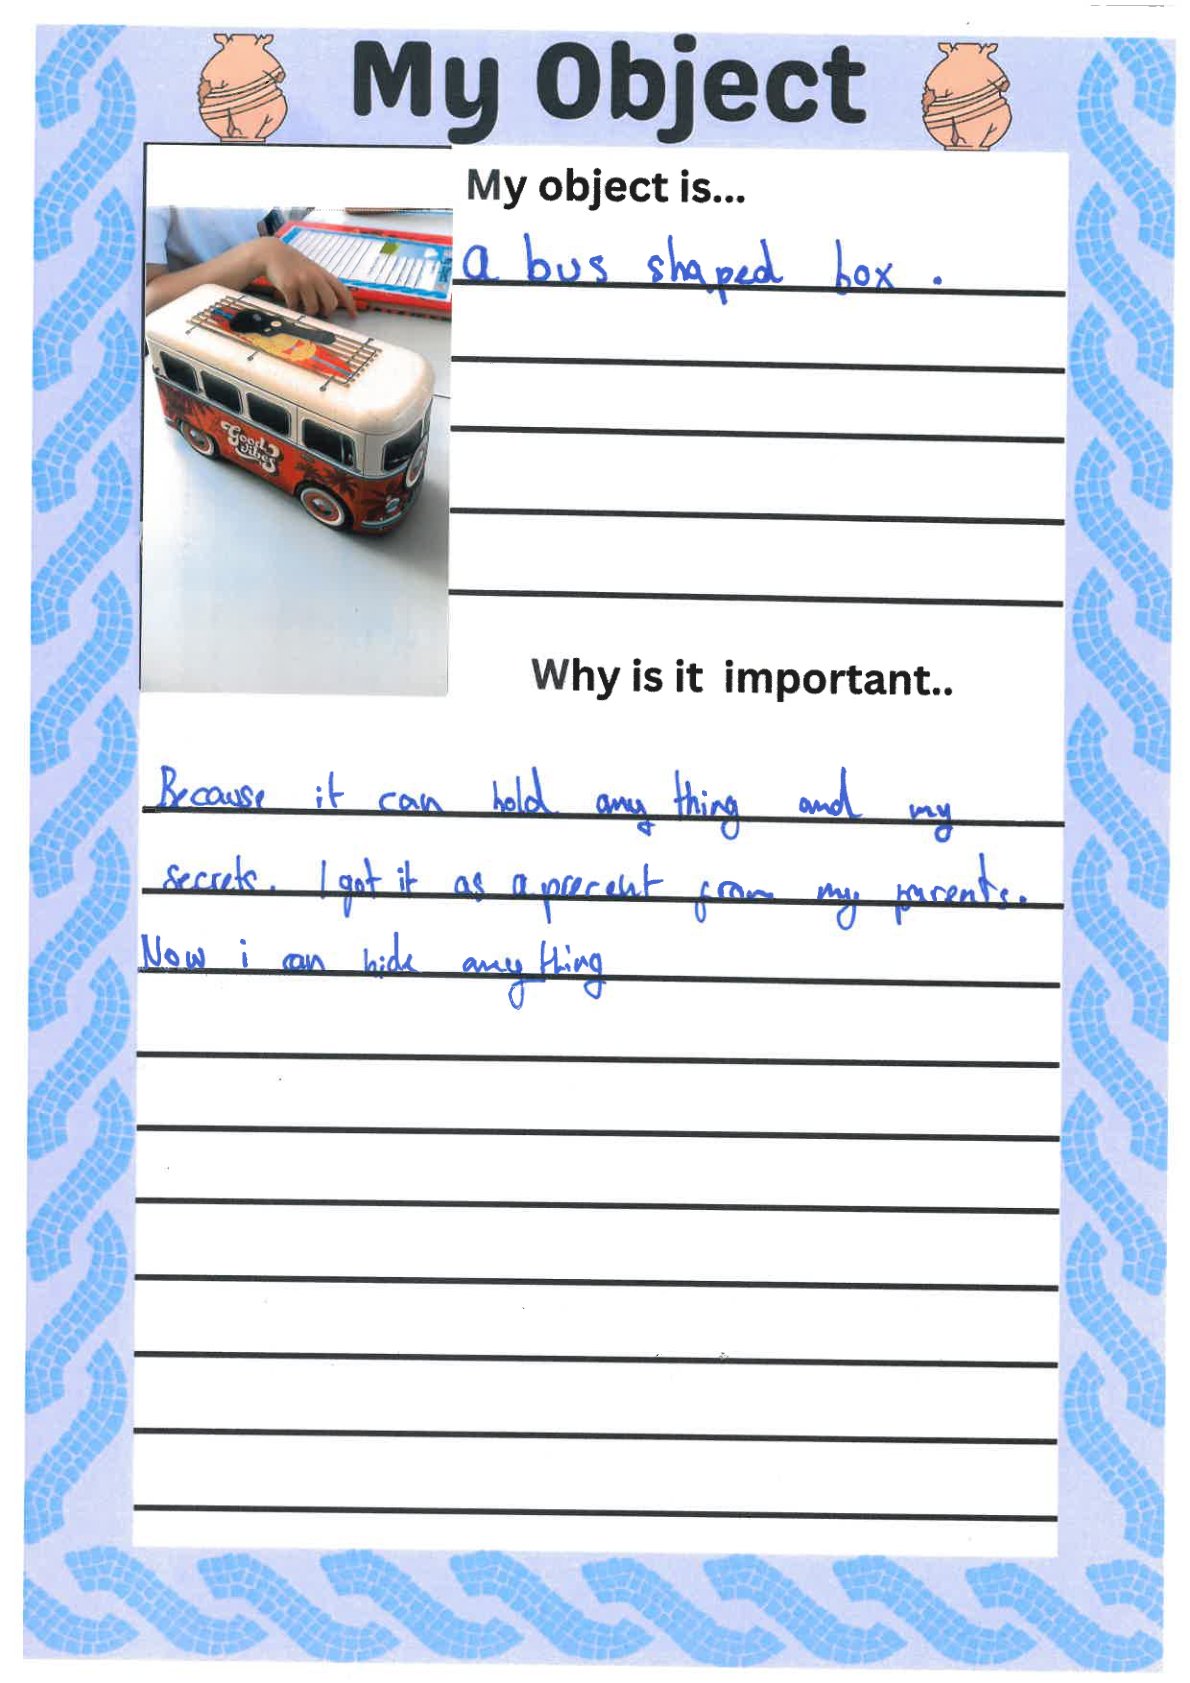 My Object
My object is...
a bus shaped box.
Good
vibes
Why is it important..
Because it can hold any thing and my
secrets. I got it as a precent from my parents.
Now i can hide any thing